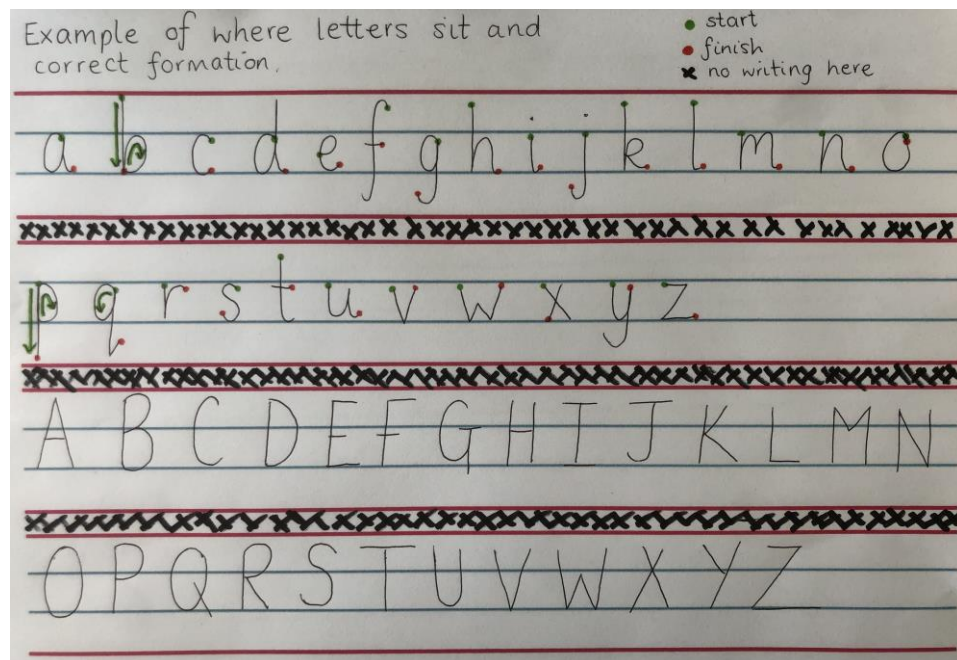 Example of where letters sit and
correct formation.
start
finish
x no writing here
a b c d e f g h i j k l m n o
p q r s t u v w x y z
A B C D E F G H I J K L M N
O P Q R S T U V W X Y Z